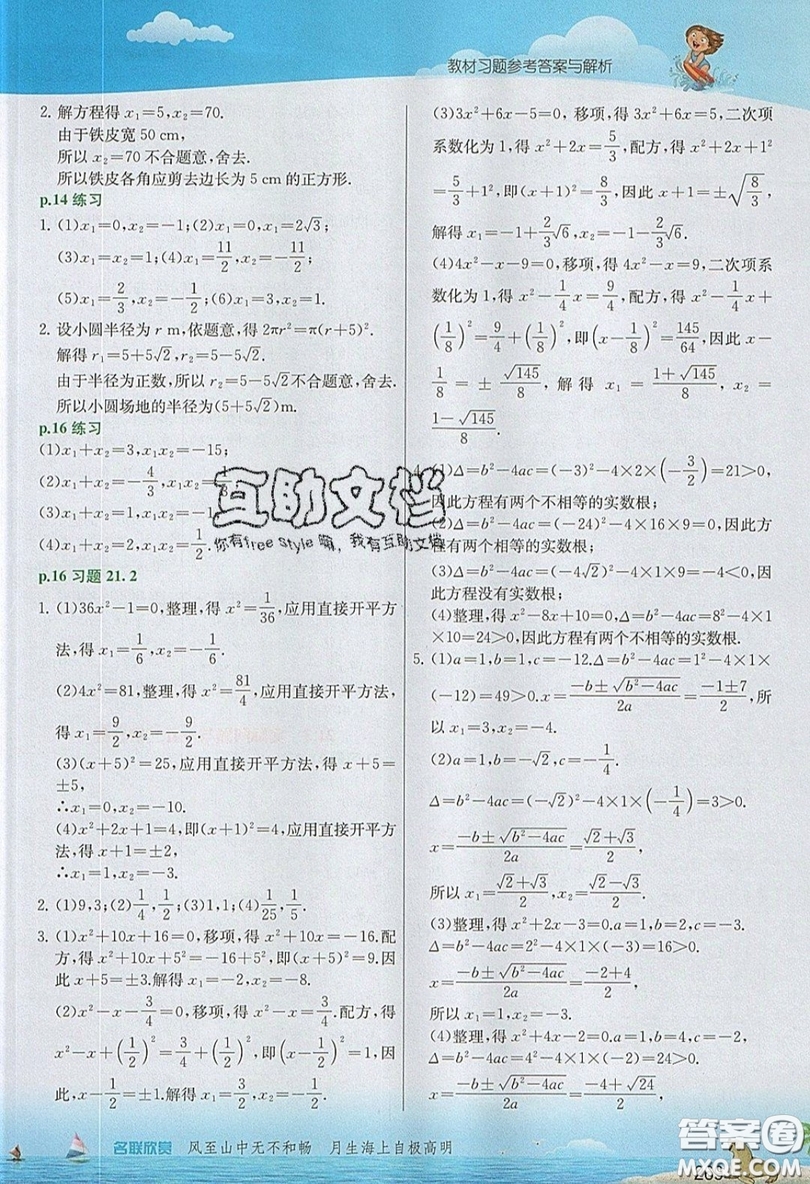 教材习题参考答案与解析
2. 解方程得 x₁=5,x₂=70.
由于铁皮宽 50 cm,
所以 x₂=70 不合题意,舍去.
所以铁皮各角应剪去边长为 5 cm 的正方形.
p.14 练习
1. (1)x₁=0,x₂=-1;(2)x₁=0,x₂=2√3;
(3)x₁=x₂=1;(4)x₁=11/2,x₂=-11/2;
(5)x₁=2/3,x₂=-1/2;(6)x₁=3,x₂=1.
2. 设小圆半径为 r m,依题意,得 2πr²=π(r+5)².
解得 r₁=5+5√2,r₂=5-5√2.
由于半径为正数,所以 r=5-5√2 不合题意,舍去.
所以小圆场地的半径为(5+5√2)m.
p.16 练习
(1)x₁+x₂=3,x₁x₂=-15;
(2)x₁+x₂=-4/3,x₁x₂=
(3)x₁+x₂=1,x₁x₂=-1
(4)x₁+x₂=2,x₁x₂=1/2.
p.16 习题 21.2
1. (1)36x²-1=0,整理,得 x²=1/36,应用直接开平方
法,得 x₁=1/6,x₂=-1/6.
(2)4x²=81,整理,得 x²=81/4,应用直接开平方法,
得 x₁=9/2,x₂=-9/2.
(3)(x+5)²=25,应用直接开平方法,得 x+5=
±5,
∴x₁=0,x₂=-10.
(4)x²+2x+1=4,即(x+1)²=4,应用直接开平方
法,得 x+1=±2,
∴x₁=1,x₂=-3.
2. (1)9,3;(2)1/4,1/2;(3)1,1;(4)1/25,1/5.
3. (1)x²+10x+16=0,移项,得 x²+10x=-16.配
方,得 x²+10x+5²=-16+5²,即(x+5)²=9.因
此 x+5=±3.解得 x₁=-2,x₂=-8.
(2)x²-x-3/4=0,移项,得 x²-x=3/4.配方,得
x²-x+(1/2)²=3/4+(1/2)²,即(x-1/2)²=1,因
此,x-1/2=±1.解得 x₁=3/2,x₂=-1/2.
(3)3x²+6x-5=0,移项,得 3x²+6x=5,二次项
系数化为 1,得 x²+2x=5/3,配方,得 x²+2x+1²
=5/3+1²,即(x+1)²=8/3,因此 x+1=±√(8/3),
解得 x₁=-1+2/3√6,x₂=-1-2/3√6.
(4)4x²-x-9=0,移项,得 4x²-x=9,二次项系
数化为 1,得 x²-1/4x=9/4,配方,得 x²-1/4x+
(1/8)²=9/4+(1/8)²,即(x-1/8)²=145/64,因此 x-
1/8=±√145/8,解得 x₁=(1+√145)/8,x₂=
(1-√145)/8.
4. (1)Δ=b²-4ac=(-3)²-4×2×(-3/2)=21>0,
因此方程有两个不相等的实数根;
(2)Δ=b²-4ac=(-24)²-4×16×9=0,因此方
程有两个相等的实数根;
(3)Δ=b²-4ac=(-4√2)²-4×1×9=-4<0,因
此方程没有实数根;
(4)整理,得 x²-8x+10=0,Δ=b²-4ac=8²-4×1
×10=24>0,因此方程有两个不相等的实数根.
5. (1)a=1,b=1,c=-12.Δ=b²-4ac=1²-4×1×
(-12)=49>0.x=(-b±√(b²-4ac))/2a=(-1±7)/2,所
以 x₁=3,x₂=-4.
(2)a=1,b=-√2,c=-1/4.
Δ=b²-4ac=(-√2)²-4×1×(-1/4)=3>0.
x=(-b±√(b²-4ac))/2a=(√2±√3)/2,
所以 x₁=(√2+√3)/2,x₂=(√2-√3)/2.
(3)整理,得 x²+2x-3=0.a=1,b=2,c=-3.
Δ=b²-4ac=2²-4×1×(-3)=16>0.
x=(-b±√(b²-4ac))/2a=(-2±4)/2,
所以 x₁=1,x₂=-3.
(4)整理,得 x²+4x-2=0.a=1,b=4,c=-2.
Δ=b²-4ac=4²-4×1×(-2)=24>0.
x=(-b±√(b²-4ac))/2a=(-4±√24)/2,
互助文档
你有free style嘛,我有互助文档
名联欣赏 风至山中无不和畅 月生海上自极高明
答案圈
MXQE.COM